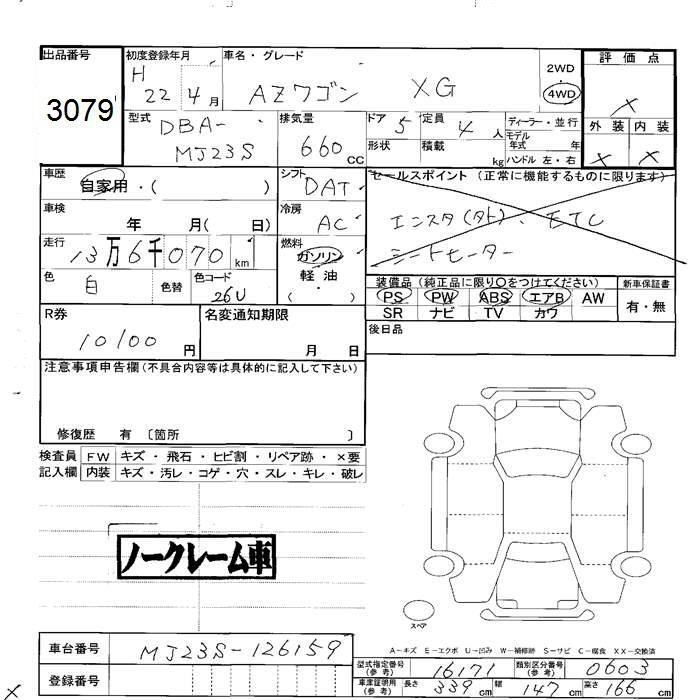 出品番号
3079
初度登録年月
H 22年 4月
車名・グレード
AZワゴン XG
2WD
4WD
評価点
X
外装 内装
X X
型式
DBA-
MJ23S
排気量
660 CC
ドア 5
形状
定員 4 人
積載 kg
ディーラー・並行
モデル
年式 年
ハンドル 左・右
車歴
自家用・( )
シフト
DAT
セールスポイント (正常に機能するものに限ります)
エンスタ(タト)、ETC
シートヒーター
車検
年 月( 日)
冷房
AC
走行
13万6千070 km
燃料
ガソリン
軽油
( ・ )
色
白
色替
色コード
26U
装備品 (純正品に限り○をつけてください)
PS PW ABS エアB AW
SR ナビ TV カワ
新車保証書
有・無
R券
10100 円
名変通知期限
月 日
後日品
注意事項申告欄(不具合内容等は具体的に記入して下さい)
修復歴 有 〔箇所 〕
検査員 FW キズ・飛石・ヒビ割・リペア跡・×要
記入欄 内装 キズ・汚レ・コゲ・穴・スレ・キレ・破レ
ノークレーム車
スペア
A-キズ E-エクボ U-凹み W-補修跡 S-サビ C-腐食 XX-交換済
車台番号
MJ23S-126159
登録番号
型式指定番号
(参考)
16171
類別区分番号
(参考)
0603
車庫証明用
(参考)
長さ 339 cm 幅 147 cm 高さ 166 cm
X